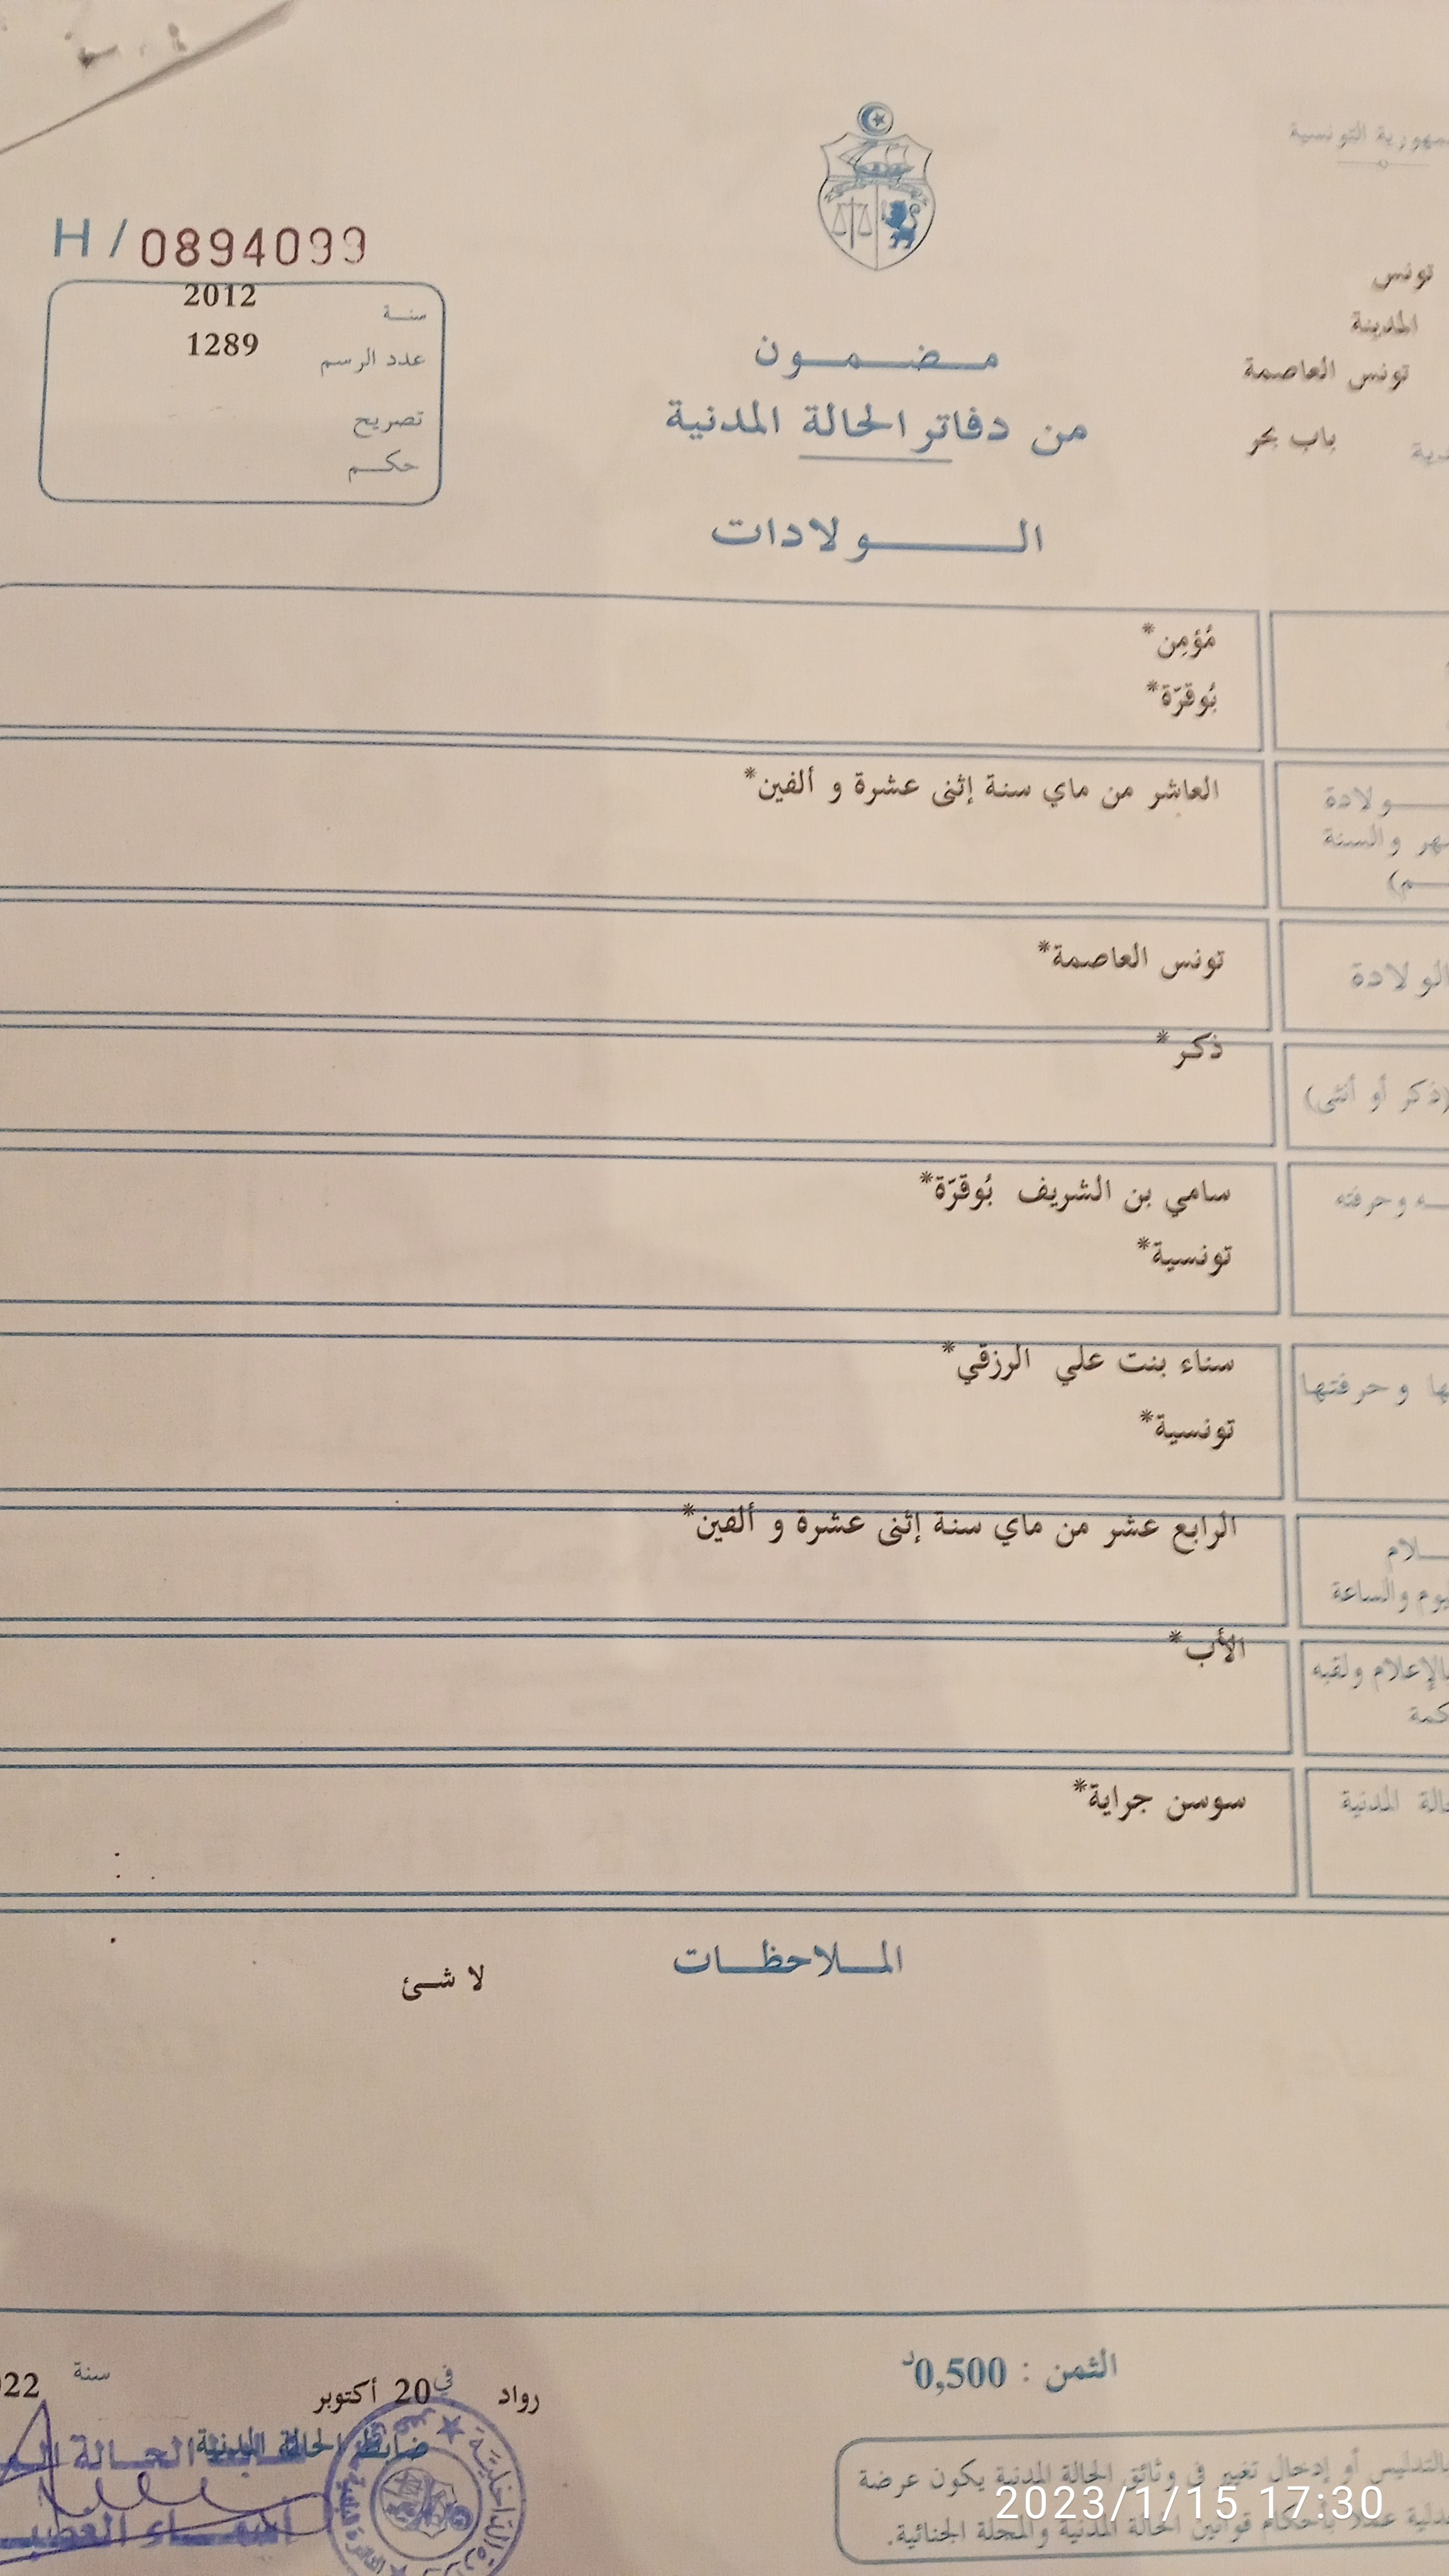 الجمهورية التونسية
تونس
المدينة
تونس العاصمة
باب بحر
H / 0894099
سنة 2012
عدد الرسم 1289
تصريح
حكم
مضمون
من دفاتر الحالة المدنية
الولادات
مُؤمِن*
بُوقرّة*
ولادة
والسنة
العاشر من ماي سنة إثنى عشرة و ألفين*
الولادة
تونس العاصمة*
(ذكر أو أنثى)
ذكر*
وحرفته
سامي بن الشريف بُوقرّة*
تونسية*
وحرفتها
سناء بنت علي الرزقي*
تونسية*
والساعة
الرابع عشر من ماي سنة إثنى عشرة و ألفين*
بالإعلام ولقبه
الأب*
المدنية
سوسن جراية*
الملاحظات
لا شئ
الثمن : 0,500د
رواد في 20 أكتوبر سنة 22
ضابط الحالة المدنية
أو إدخال تغيير في وثائق الحالة المدنية يكون عرضة
بأحكام قوانين الحالة المدنية والمجلة الجنائية.
2023/1/15 17:30